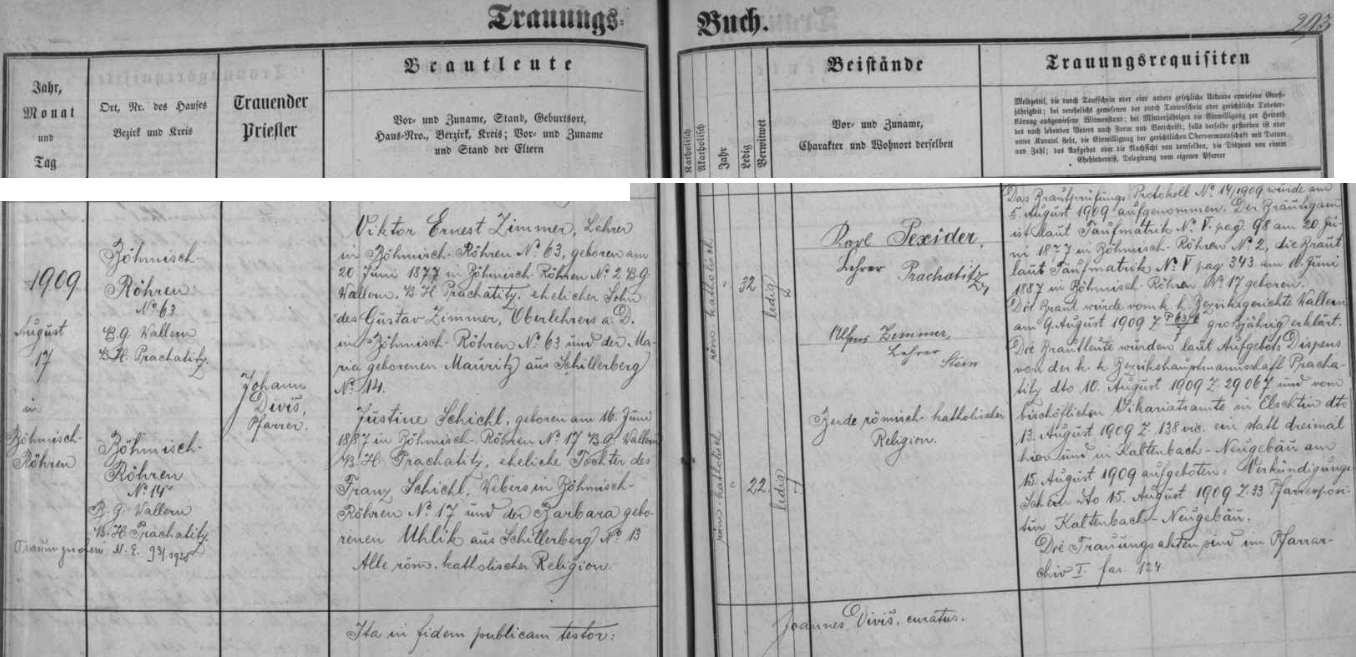 Trauungs-
Buch.
293
Jahr,
Monat
und
Tag
Ort, Nr. des Hauses
Bezirk und Kreis
Trauender
Priester
Brautleute
Vor- und Zuname, Stand, Geburtsort,
Haus-Nro., Bezirk, Kreis; Vor- und Zuname
und Stand der Eltern
Katholisch
Akatholisch
Jahr
Ledig
Verwitwet
Beistände
Vor- und Zuname,
Charakter und Wohnort derselben
Trauungsrequisiten
1909
August
17
in
Böhmisch-
Röhren
Böhmisch-
Röhren
No 63
B.G. Wallern
B.H. Prachatitz.
Böhmisch-
Röhren
No 14
B.G. Wallern
B.H. Prachatitz
Johann
Diviš,
Pfarrer.
Viktor Ernest Zimmer, Lehrer
in Böhmisch-Röhren No 63, geboren am
20 Juni 1877 in Böhmisch-Röhren No 2 B.G.
Wallern, B.H. Prachatitz, ehelicher Sohn
des Gustav Zimmer, Oberlehrers a. D.
in Böhmisch-Röhren No 63 und der Ma-
ria geborenen Mauritz aus Schillerberg
No 14.
Justine Schichl, geboren am 16. Juni
1887 in Böhmisch-Röhren No 17 B.G. Wallern
B.H. Prachatitz, eheliche Tochter des
Franz Schichl, Webers in Böhmisch-
Röhren No 17 und der Barbara gebo-
renen Uhlik aus Schillerberg No 13
Alle röm. katholischer Religion.
Ita in fidem publicam testor:
röm katholisch
32
ledig
röm katholisch
22.
ledig
Karl Pexider,
Lehrer Prachatitz,
Alfons Zimmer,
Lehrer
Stein
Beide römisch-katholischer
Religion.
Joannes Diviš, curatus.
Das Brautprüfungs Protokoll No 14/1909 wurde am
5 August 1909 aufgenommen. Der Bräutigam
ist laut Taufmatrik No V. pag. 98 am 20 Ju-
ni 1877 in Böhmisch-Röhren No 2, die Braut
laut Taufmatrik No V pag 343 am 16. Juni
1887 in Böhmisch-Röhren No 17 geboren.
Die Braut wurde vom k. k. Bezirksgerichte Wallern
am 9. August 1909 Z. großjährig erklärt.
Die Brautleute wurden laut Aufgebots Dispens
von der k. k. Bezirkshauptmannschaft Pracha-
titz dto 10. August 1909 Z. 29067 und vom
bischöflichen Vikariatsamte in dto
13. August 1909 Z. 138 ein statt dreimal
hier und in Kaltenbach-Neugebäu am
15. August 1909 aufgeboten: Verkündigungs
Schein dto 15. August 1909 Z. 33 Pfarrexposi-
tur Kaltenbach-Neugebäu.
Die Trauungsakten sind im Pfarrar-
chiv I. fas. 124.